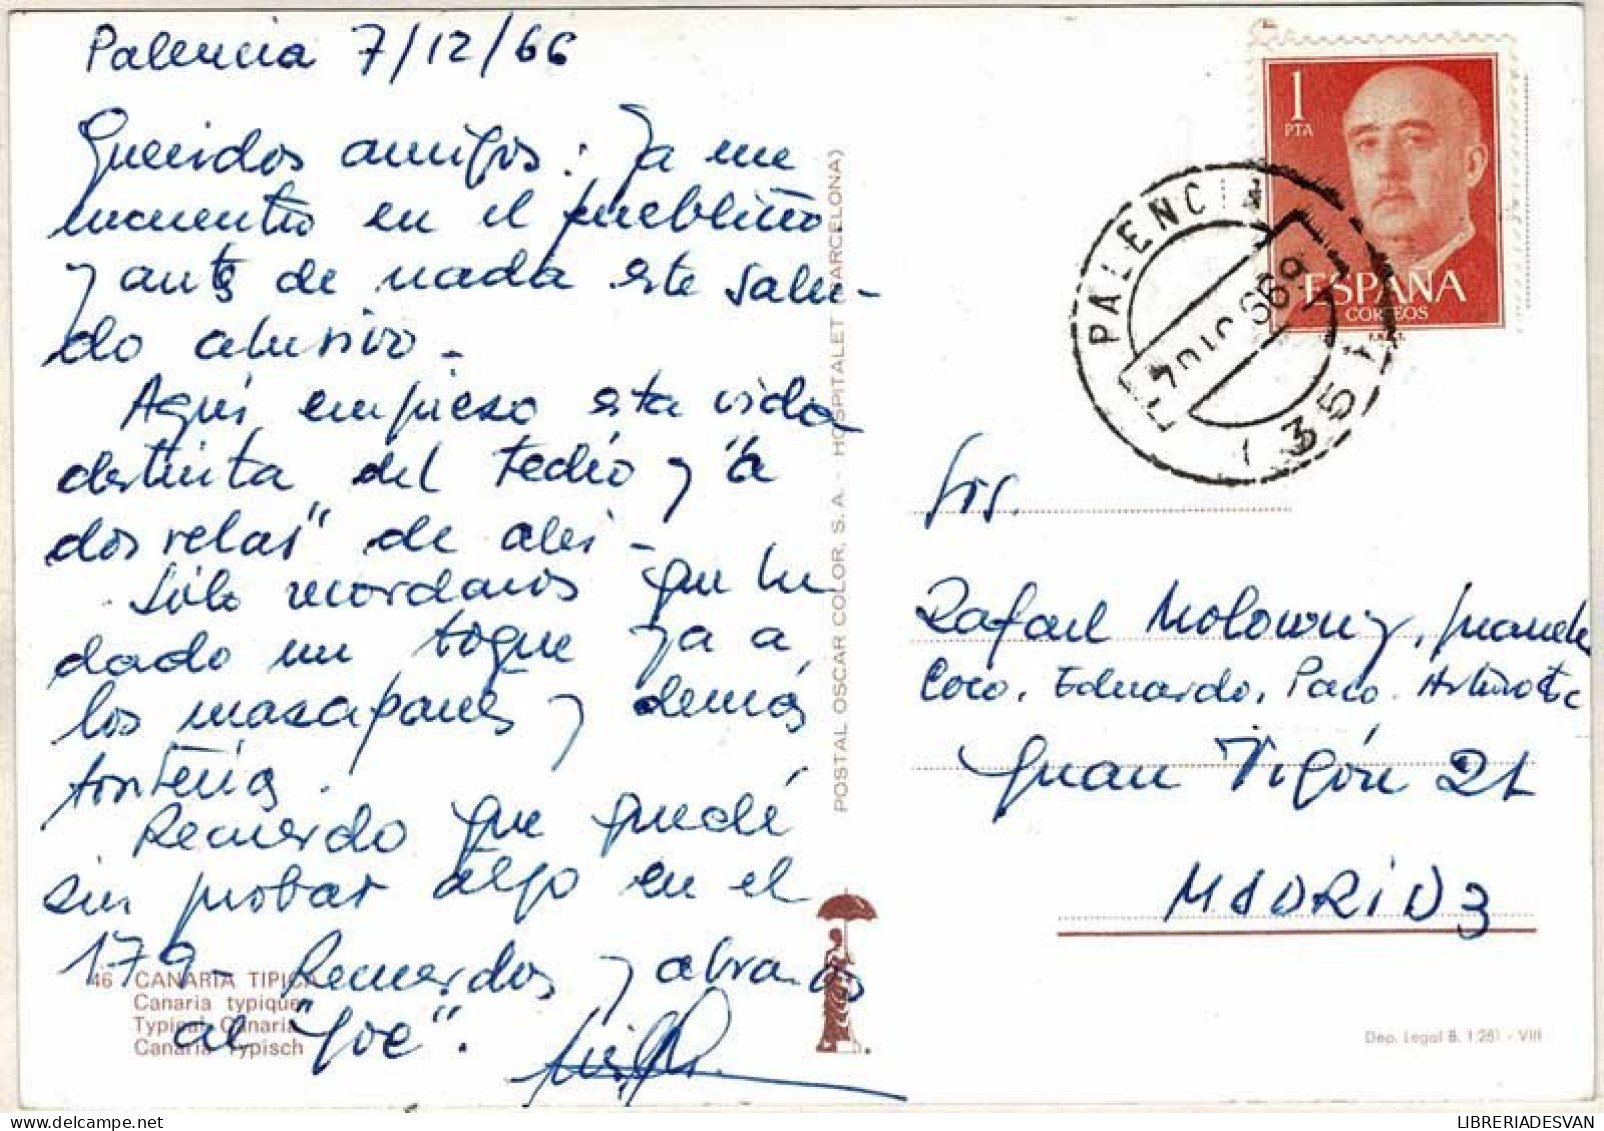 Palencia 7/12/66
Queridos amigos: Ya me
encuentro en el pueblito
y antes de nada este salu-
do alusivo.
Aquí empiezo esta vida
distinta del tedio y "a
dos velas" de ahí.
Sólo recordaros que he
dado un toque ya a
los mazapanes y demás
tontería.
Recuerdo que quedé
sin probar algo en el
179. Recuerdos y abrazos
al "Joe".
46 CANARIA TIPICA
Canaria typique
Typical Canaria
Canaria Typisch
POSTAL OSCAR COLOR, S. A. - HOSPITALET (BARCELONA)
1
PTA
ESPAÑA
CORREOS
F.N.M.T.
PALENCIA
Srs.
Rafael Molowny,
Coco, Eduardo, Paco, Arturo etc
Juan Vigón 21
MADRID 3
Dep. Legal B. 1.281 - VIII
LIBRERIADESVAN